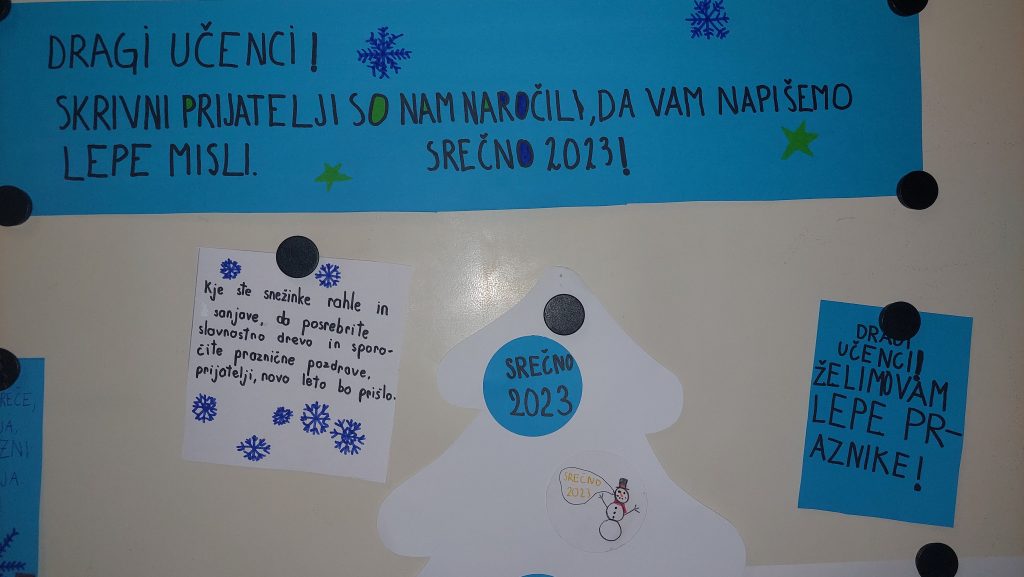 DRAGI UČENCI!
SKRIVNI PRIJATELJI SO NAM NAROČILI, DA VAM NAPIŠEMO
LEPE MISLI. SREČNO 2023!
Kje ste snežinke rahle in
sanjave, da posrebrite
slavnostno drevo in sporo-
čite praznične pozdrave,
prijatelji, novo leto bo prišlo.
SREČNO
2023
SREČNO
2023
DRAGI
UČENCI!
ŽELIMOVAM
LEPE PR-
AZNIKE!